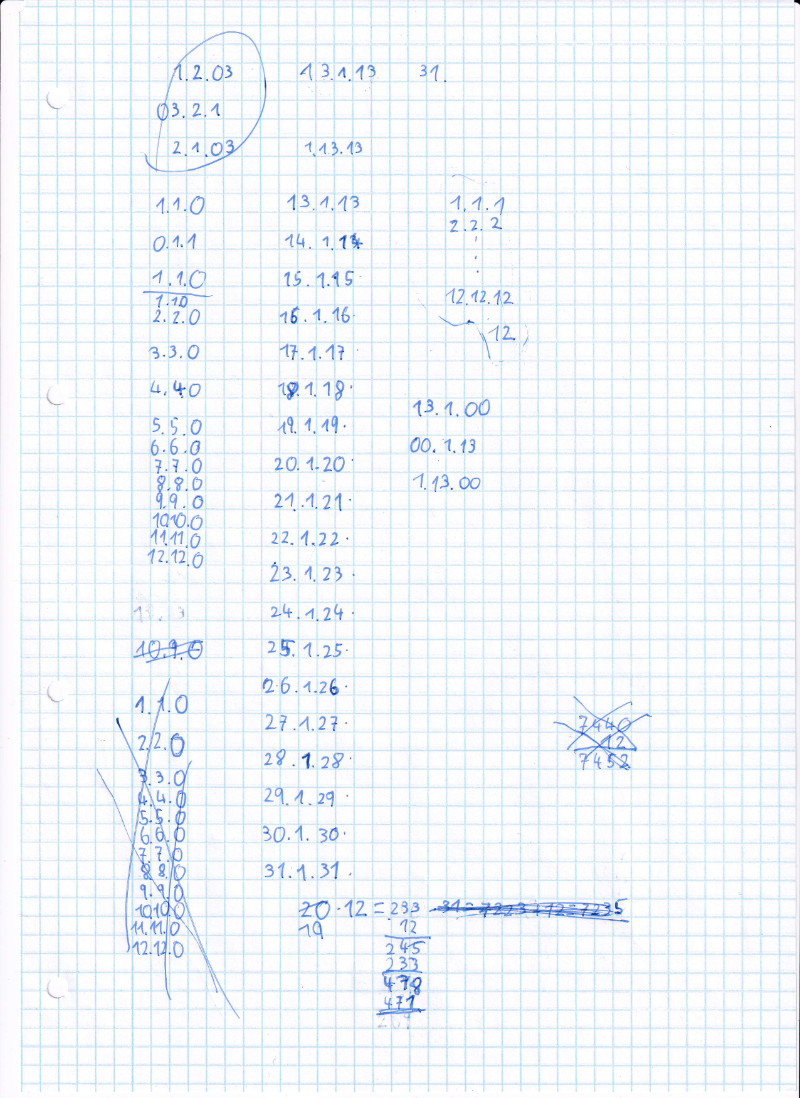 1.2.03
03.2.1
2.1.03
1.1.0
0.1.1
1.1.0
1.10
2.2.0
3.3.0
4.4.0
5.5.0
6.6.0
7.7.0
8.8.0
9.9.0
10.10.0
11.11.0
12.12.0
10.9.0
1.1.0
2.2.0
3.3.0
4.4.0
5.5.0
6.6.0
7.7.0
8.8.0
9.9.0
10.10.0
11.11.0
12.12.0
13.1.13
1.13.13
13.1.13
14.1.14
15.1.15
16.1.16.
17.1.17
18.1.18.
19.1.19.
20.1.20.
21.1.21.
22.1.22.
23.1.23.
24.1.24.
25.1.25.
26.1.26.
27.1.27.
28.1.28.
29.1.29.
30.1.30.
31.1.31.
31.
1.1.1
2.2.2
12.12.12
12
13.1.00
00.1.13
1.13.00
7440
12
7452
20 · 12 = 233
19 12
245
233
478
471